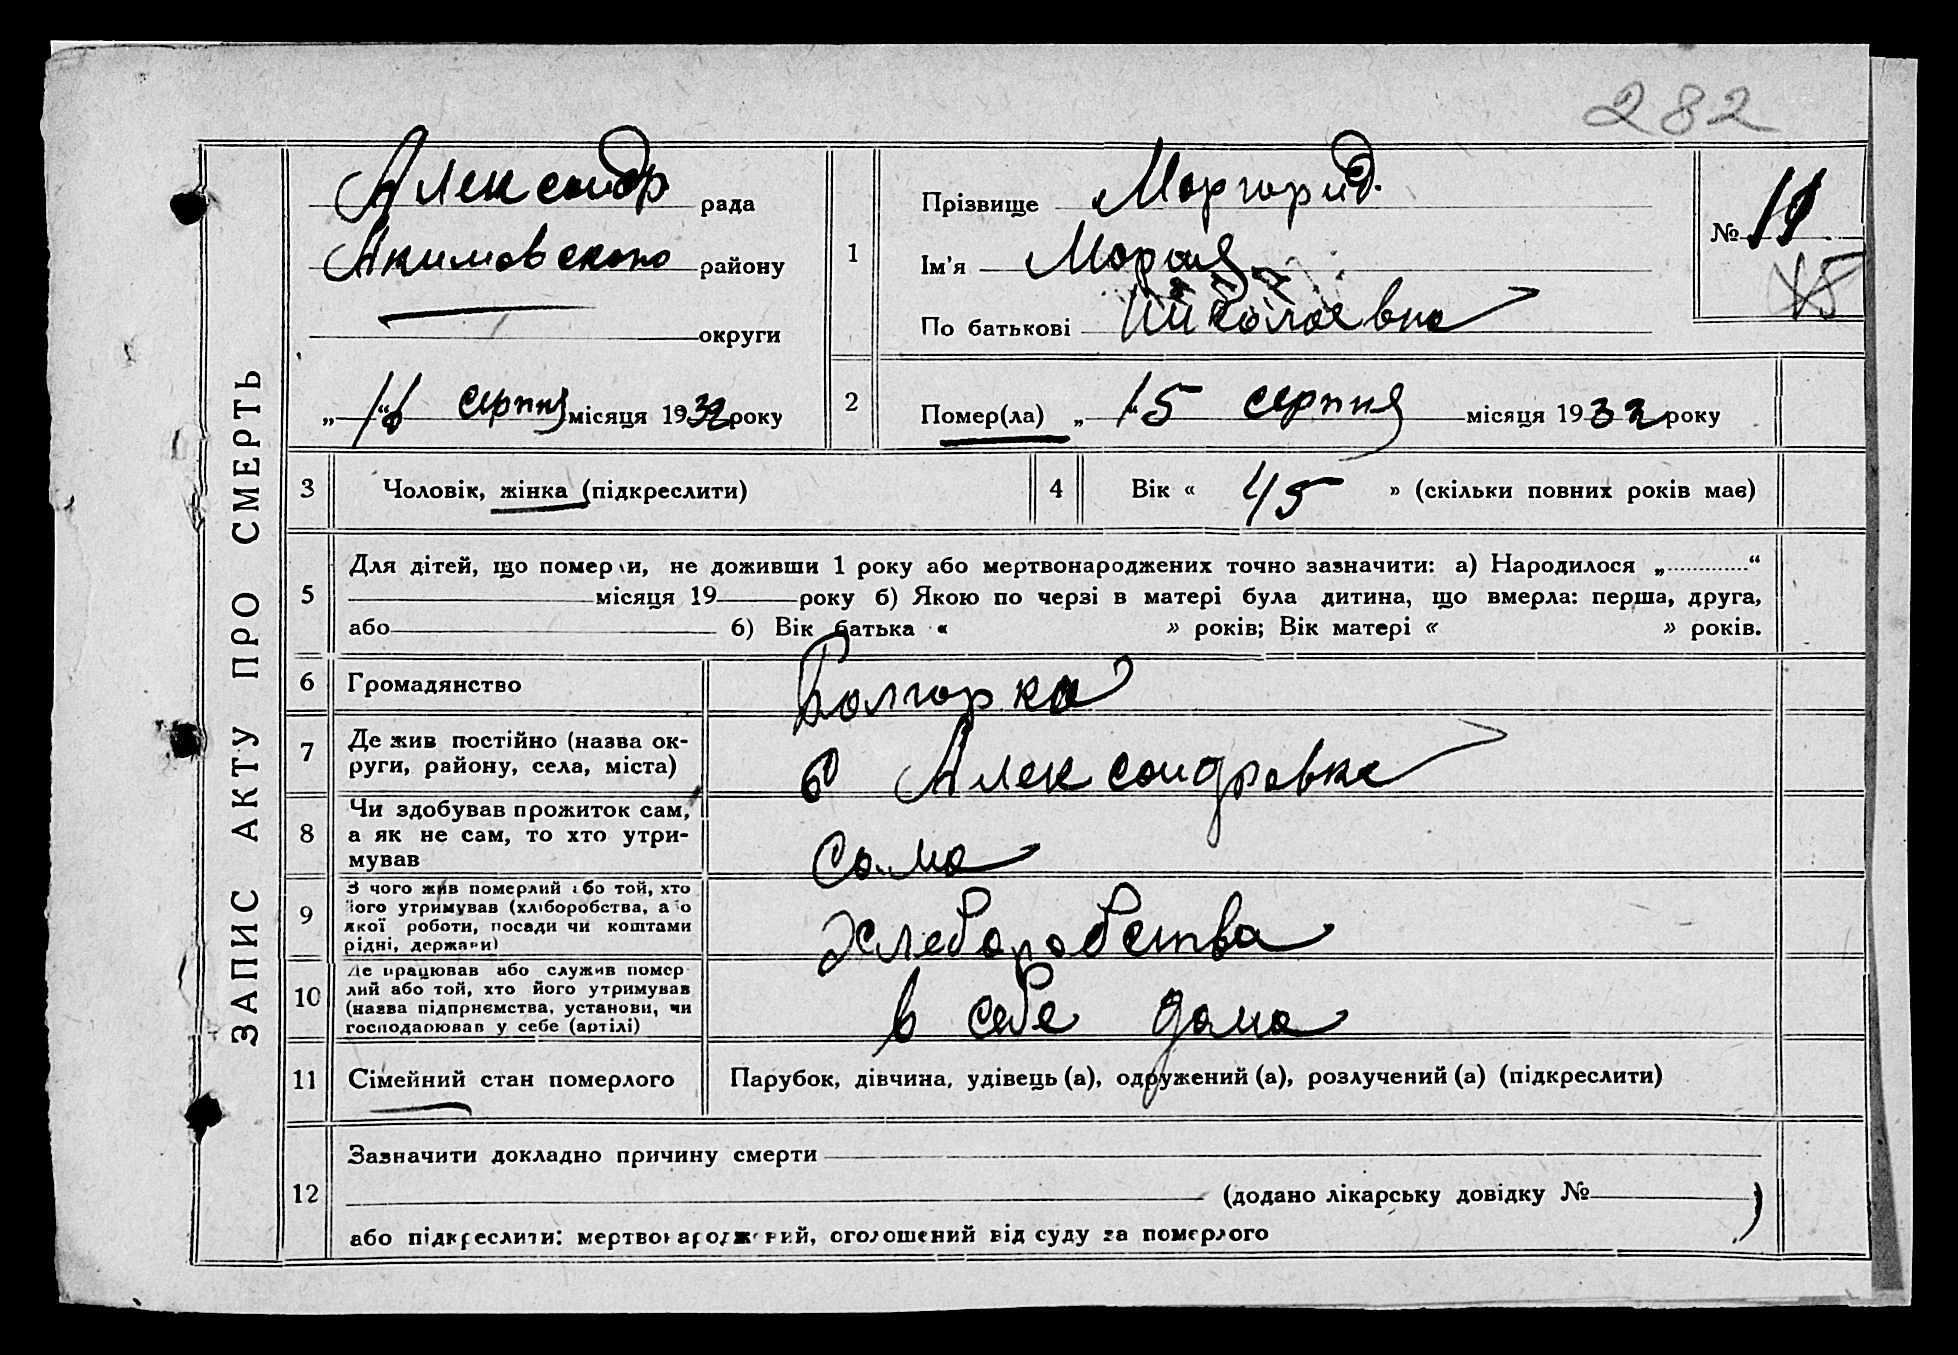 282
ЗАПИС АКТУ ПРО СМЕРТЬ
Александр рада
Акимовского району
округи
„ 16 “ серпня місяця 1932 року
1
Прізвище Моргорид.
Ім'я Мория
По батькові Николаевна
№ 11
45
2
Помер(ла) „ 15 “ серпня місяця 1932 року
3 Чоловік, жінка (підкреслити)
4 Вік « 45 » (скільки повних років має)
5
Для дітей, що померли, не доживши 1 року або мертвонароджених точно зазначити: а) Народилося „ “
місяця 19 року б) Якою по черзі в матері була дитина, що вмерла: перша, друга,
або б) Вік батька « » років; Вік матері « » років.
6 Громадянство Болгорка
7 Де жив постійно (назва ок-
руги, району, села, міста)
в Александровке
8 Чи здобував прожиток сам,
а як не сам, то хто утри-
мував
Сама
9 З чого жив померлий або той, хто
його утримував (хліборобства, або
якої роботи, посади чи коштами
рідні, держави)
Хлеборобства
10 Де працював або служив помер-
лий або той, хто його утримував
(назва підприємства, установи, чи
господарював у себе (артілі)
в себе дома
11 Сімейний стан померлого Парубок, дівчина, удівець (а), одружений (а), розлучений (а) (підкреслити)
12
Зазначити докладно причину смерти
(додано лікарську довідку № )
або підкреслити: мертвонароджений, оголошений від суду за померлого